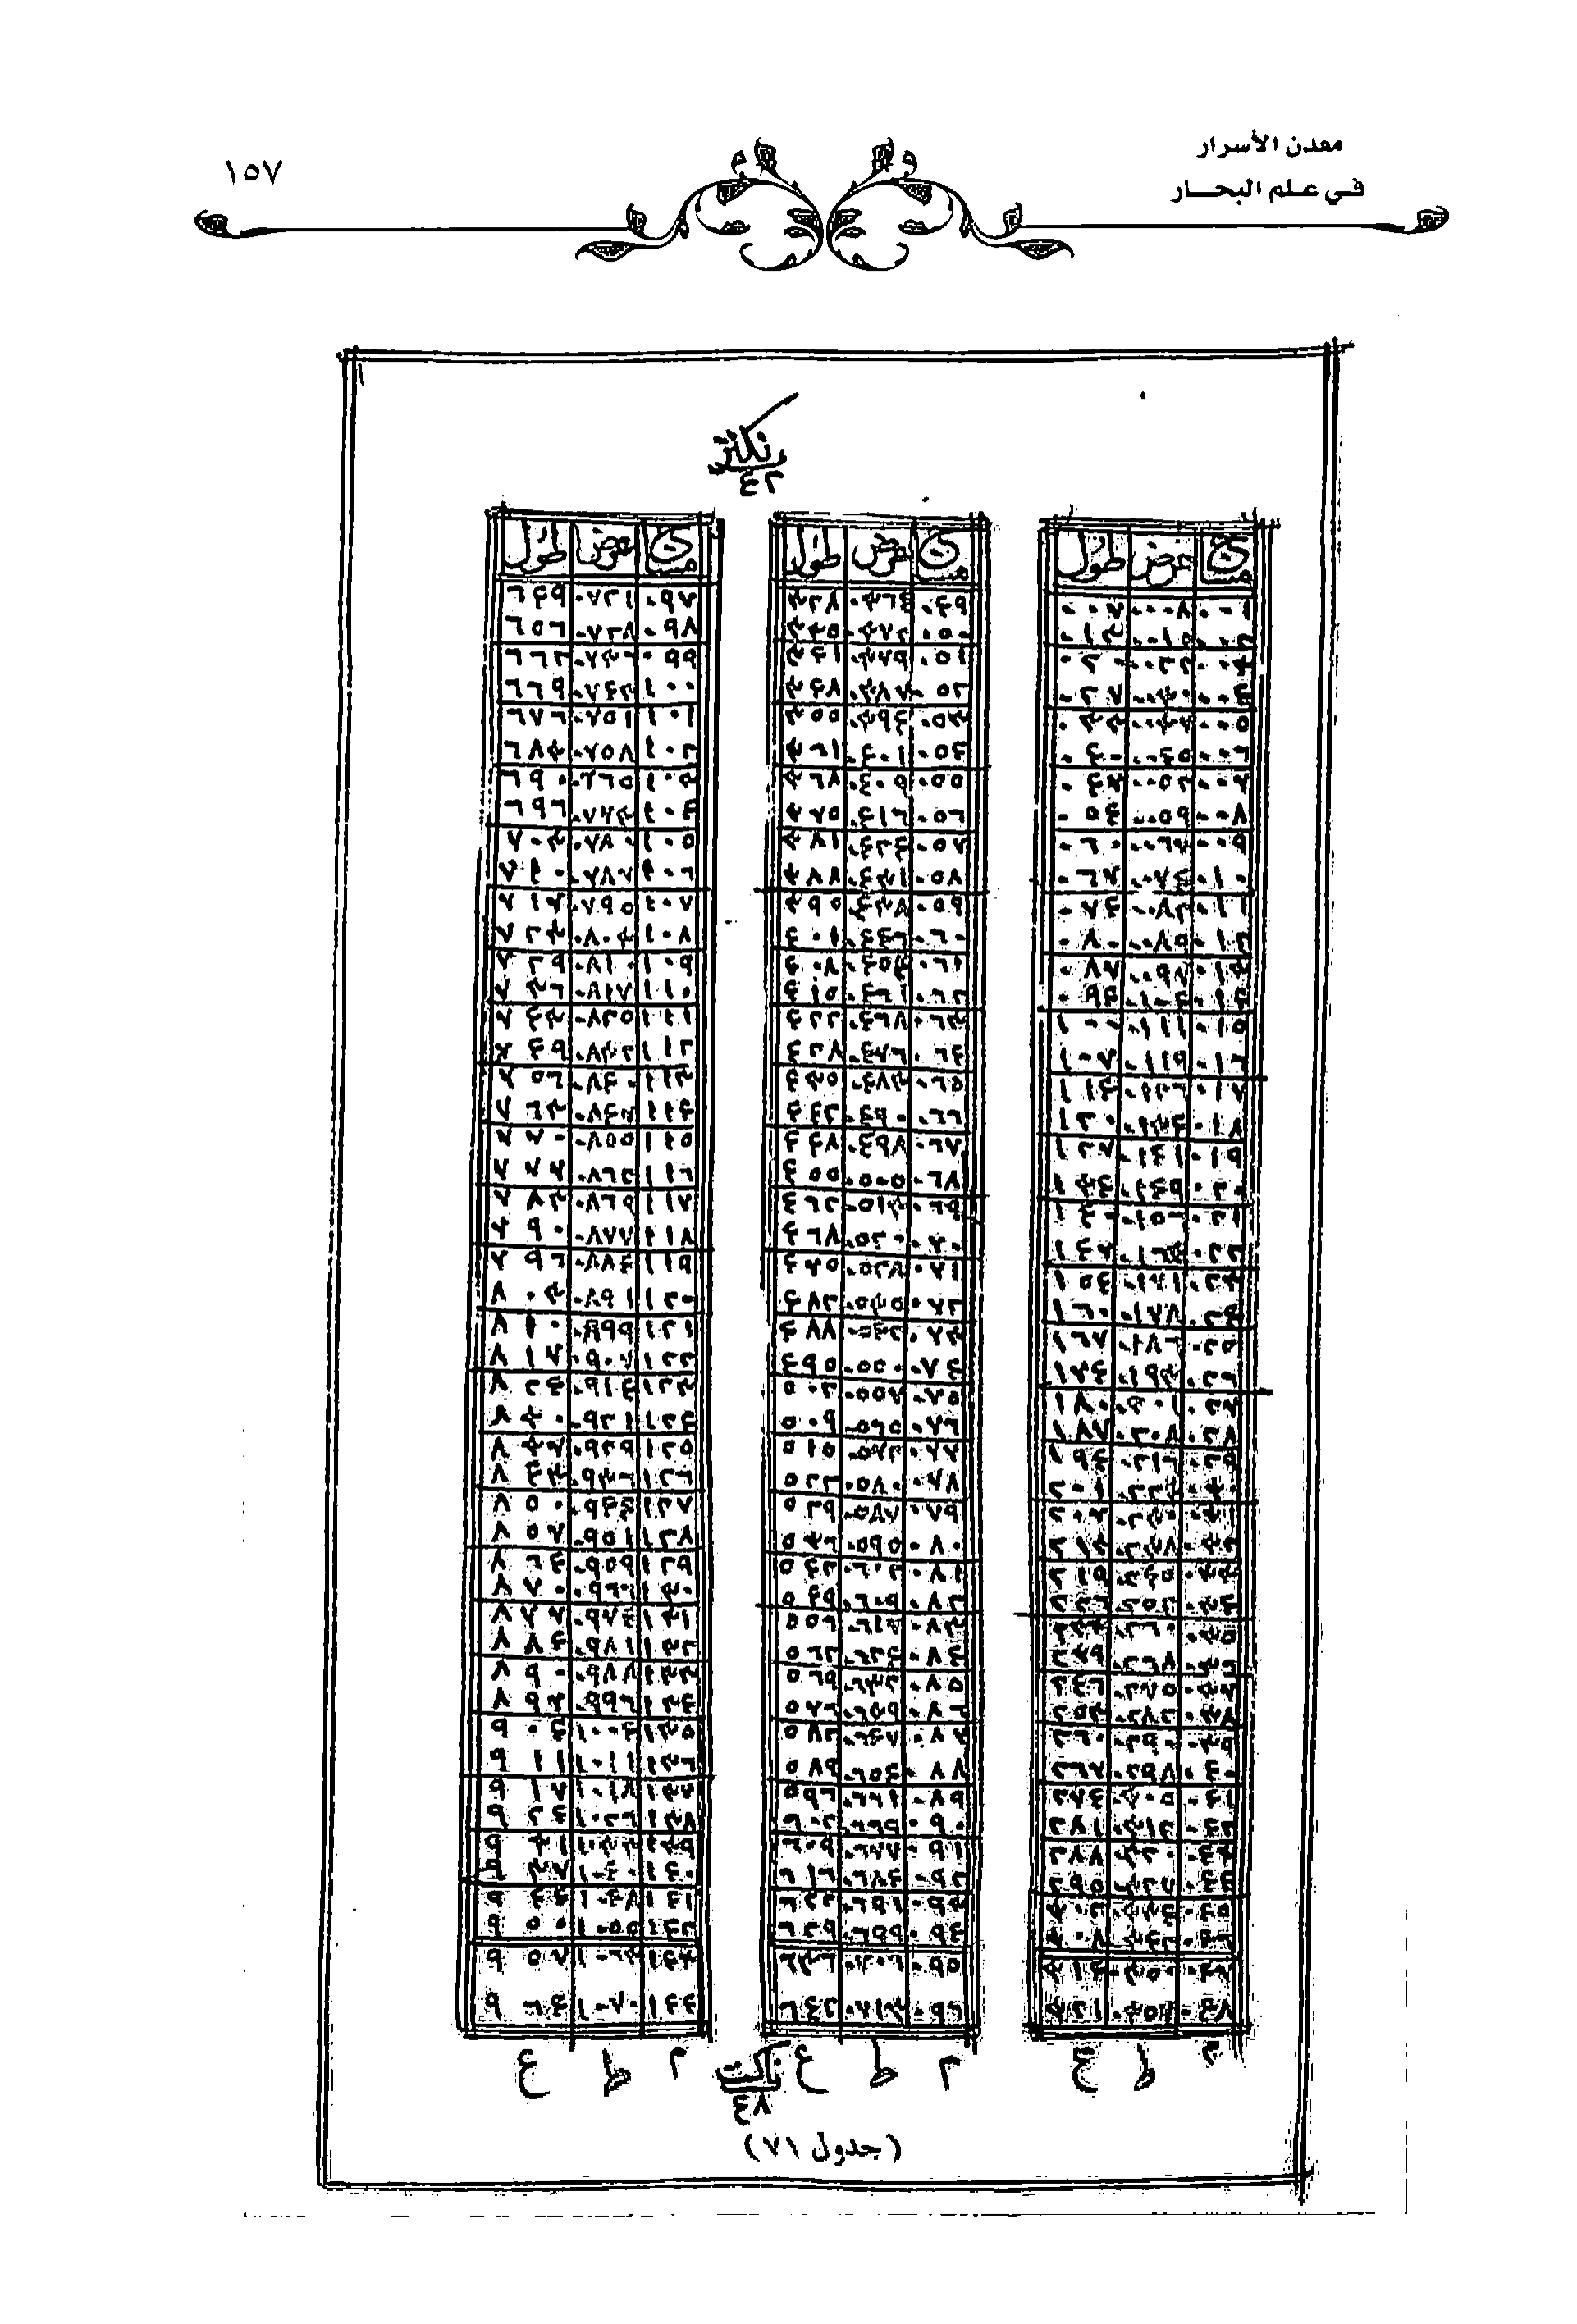 معدن الأسرار
في علم البحار
١٥٧
٤٢
مسا عرض طول
٠٠١ ٠٠٠٨ ٠٠٧
٠٠٢ ٠٠١٥ ٠١٣
٠٠٣ ٠٠٢٢ ٠٢٠
٠٠٤ ٠٠٣٠ ٠٢٧
٠٠٥ ٠٠٣٧ ٠٣٣
٠٠٦ ٠٠٤٥ ٠٤٠
٠٠٧ ٠٠٥٢ ٠٤٧
٠٠٨ ٠٠٥٩ ٠٥٤
٠٠٩ ٠٠٦٧ ٠٦٠
٠١٠ ٠٠٧٤ ٠٦٧
٠١١ ٠٠٨٢ ٠٧٤
٠١٢ ٠٠٨٩ ٠٨٠
٠١٣ ٠٨٧
٠١٤ ٠١٠٤ ٠٩٤
٠١٥ ٠١١١ ١٠٠
٠١٦ ٠١١٩ ١٠٧
٠١٧ ٠١٢٦ ١١٤
٠١٨ ٠١٣٤ ١٢٠
٠١٩ ٠١٤١ ١٢٧
٠٢٠ ٠١٤٩ ١٣٤
٠٢١ ٠١٥٦ ١٤٠
٠٢٢ ١٤٧
٠٢٣ ٠١٧١ ١٥٤
٠٢٤ ٠١٧٨ ١٦٠
٠٢٥ ٠١٨٦ ١٦٧
٠٢٦ ٠١٩٣ ١٧٤
٠٢٧ ٠٢٠١ ١٨٠
٠٢٨ ٠٢٠٨ ١٨٧
٠٢٩ ٠٢١٦ ١٩٤
٠٣٠ ٠٢٢٣ ٢٠١
٠٣١ ٠٢٣٠ ٢٠٧
٠٣٢ ٠٢٣٨ ٢١٣
٠٣٣ ٠٢٤٥
٠٣٤ ٠٢٥٣
٠٣٥ ٠٢٦٠
٠٣٦ ٠٢٦٨ ٢٣٩
٠٣٧ ٠٢٧٥ ٢٤٦
٠٣٨ ٠٢٨٢ ٢٥٣
٠٣٩ ٠٢٩٠ ٢٦٠
٠٤٠ ٠٢٩٨ ٢٦٧
٠٤١ ٠٣٠٥ ٢٧٤
٠٤٢ ٠٣١٢ ٢٨١
٠٤٣ ٠٣٢٠ ٢٨٨
٠٤٤ ٠٣٢٧ ٢٩٥
٠٤٥ ٠٣٣٤ ٣٠٢
٠٤٦ ٠٣٤٢ ٣٠٨
٠٤٧ ٠٣٥٠ ٣١٤
٠٤٨ ٠٣٥٧ ٣٢١
م ط ع
مسا عرض طول
٠٤٩ ٠٣٦٤ ٣٢٨
٠٥٠ ٠٣٧٢ ٣٣٥
٠٥١ ٠٣٧٩ ٣٤١
٠٥٢ ٠٣٨٧ ٣٤٨
٠٥٣ ٠٣٩٤ ٣٥٥
٠٥٤ ٠٤٠١ ٣٦١
٠٥٥ ٠٤٠٩ ٣٦٨
٠٥٦ ٠٤١٦ ٣٧٥
٠٥٧ ٠٤٢٤ ٣٨١
٠٥٨ ٠٤٣١ ٣٨٨
٠٥٩ ٠٤٣٨ ٣٩٥
٠٦٠ ٠٤٤٦ ٤٠١
٠٦١ ٠٤٥٣ ٤٠٨
٠٦٢ ٠٤٦١ ٤١٥
٠٦٣ ٠٤٦٨ ٤٢٢
٠٦٤ ٠٤٧٦ ٤٢٨
٠٦٥ ٠٤٨٣ ٤٣٥
٠٦٦ ٠٤٩٠ ٤٤٢
٠٦٧ ٠٤٩٨ ٤٤٨
٠٦٨ ٠٥٠٥ ٤٥٥
٠٦٩ ٠٥١٣ ٤٦٢
٠٧٠ ٠٥٢٠ ٤٦٨
٠٧١ ٠٥٢٨ ٤٧٥
٠٧٢ ٠٥٣٥ ٤٨٢
٠٧٣ ٠٥٤٢ ٤٨٨
٠٧٤ ٠٥٥٠ ٤٩٥
٠٧٥ ٠٥٥٧ ٥٠٢
٠٧٦ ٠٥٦٥ ٥٠٩
٠٧٧ ٠٥٧٢ ٥١٥
٠٧٨ ٠٥٨٠ ٥٢٢
٠٧٩ ٠٥٨٧ ٥٢٩
٠٨٠ ٠٥٩٥ ٥٣٦
٠٨١ ٠٦٠٢ ٥٤٢
٠٨٢ ٠٦٠٩ ٥٤٩
٠٨٣ ٠٦١٧ ٥٥٦
٠٨٤ ٠٦٢٤ ٥٦٢
٠٨٥ ٠٦٣٢ ٥٦٩
٠٨٦ ٠٦٣٩ ٥٧٦
٠٨٧ ٠٦٤٧ ٥٨٢
٠٨٨ ٠٦٥٤ ٥٨٩
٠٨٩ ٠٦٦١ ٥٩٦
٠٩٠ ٠٦٦٩ ٦٠٢
٠٩١ ٠٦٧٧ ٦٠٩
٠٩٢ ٠٦٨٤ ٦١٦
٠٩٣ ٠٦٩١ ٦٢٢
٠٩٤ ٠٦٩٩ ٦٢٩
٠٩٥ ٠٧٠٦ ٦٣٦
٠٩٦ ٠٧١٣ ٦٤٢
م ط ع
مسا عرض طول
٠٩٧ ٠٧٢١ ٦٤٩
٠٩٨ ٠٧٢٨ ٦٥٦
٠٩٩ ٠٧٣٦ ٦٦٢
١٠٠ ٠٧٤٣ ٦٦٩
١٠١ ٠٧٥١ ٦٧٦
١٠٢ ٠٧٥٨ ٦٨٣
١٠٣ ٠٦٦٥ ٦٩٠
١٠٤ ٠٧٧٣ ٦٩٦
١٠٥ ٠٧٨٠ ٧٠٣
١٠٦ ٠٧٨٧ ٧١٠
١٠٧ ٠٧٩٥ ٧١٧
١٠٨ ٠٨٠٣ ٧٢٣
١٠٩ ٠٨١٠ ٧٢٩
١١٠ ٠٨١٧ ٧٣٦
١١١ ٠٨٢٥ ٧٤٣
١١٢ ٠٨٣٢ ٧٤٩
١١٣ ٠٨٤٠ ٧٥٦
١١٤ ٠٨٤٧ ٧٦٣
١١٥ ٠٨٥٥ ٧٧٠
١١٦ ٠٨٦٢ ٧٧٧
١١٧ ٠٨٦٩ ٧٨٣
١١٨ ٠٨٧٧ ٧٩٠
١١٩ ٠٨٨٤ ٧٩٦
١٢٠ ٠٨٩١ ٨٠٣
١٢١ ٠٨٩٩ ٨١٠
١٢٢ ٠٩٠٧ ٨١٧
١٢٣ ٠٩١٤ ٨٢٤
١٢٤ ٠٩٢١ ٨٣٠
١٢٥ ٠٩٢٩ ٨٣٧
١٢٦ ٠٩٣٦ ٨٤٣
١٢٧ ٠٩٤٤ ٨٥٠
١٢٨ ٠٩٥١ ٨٥٧
١٢٩ ٠٩٥٩ ٨٦٤
١٣٠ ٠٩٦٦ ٨٧٠
١٣١ ٠٩٧٤ ٨٧٧
١٣٢ ٠٩٨١ ٨٨٤
١٣٣ ٠٩٨٨ ٨٩٠
١٣٤ ٠٩٩٦ ٨٩٧
١٣٥ ١٠٠٤ ٩٠٤
١٣٦ ١٠١١ ٩١١
١٣٧ ١٠١٨ ٩١٧
١٣٨ ١٠٢٦ ٩٢٤
١٣٩ ١٠٣٣ ٩٣١
١٤٠ ١٠٤٠ ٩٣٧
١٤١ ١٠٤٨ ٩٤٤
١٤٢ ١٠٥٥ ٩٥٠
١٤٣ ١٠٦٣ ٩٥٧
١٤٤ ١٠٧٠ ٩٦٤
م ط ع
٤٨
(جدول ٧١)